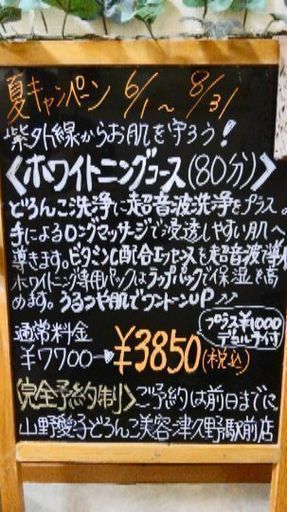 夏キャンペーン 6/1〜8/31
紫外線からお肌を守ろう!
《ホワイトニングコース(80分)》
どろんこ洗浄に超音波洗浄をプラス。
手によるロングマッサージで浸透しやすい肌へ
導きます。ビタミンC配合エッセンスを超音波で導入
ホワイトニング専用パックはラップパックで保湿を高
めます。うるつや肌でワントーンUP♪♪
通常料金
¥7700→¥3850(税込)
プラス¥1000
デコルテ付
〈完全予約制〉ご予約は前日までに
山野愛子どろんこ美容 津久野駅前店